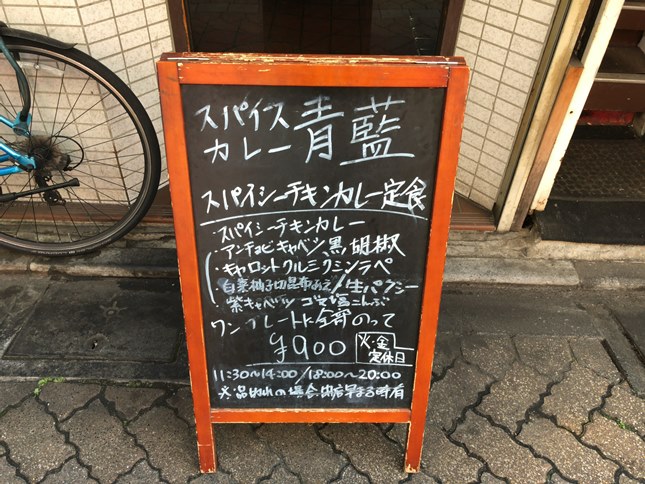 スパイス
カレー 青藍
スパイシーチキンカレー定食
・スパイシーチキンカレー
・アンチョビキャベツ黒胡椒
・キャロットクルミクミンラペ
白菜柚子切昆布あえ/生パクチー
・紫キャベツ ゴマ塩こんぶ
ワンプレートに全部のって
¥900
火・金
定休日
11:30〜14:00/18:00〜20:00
※品切れの場合、閉店早まる時有